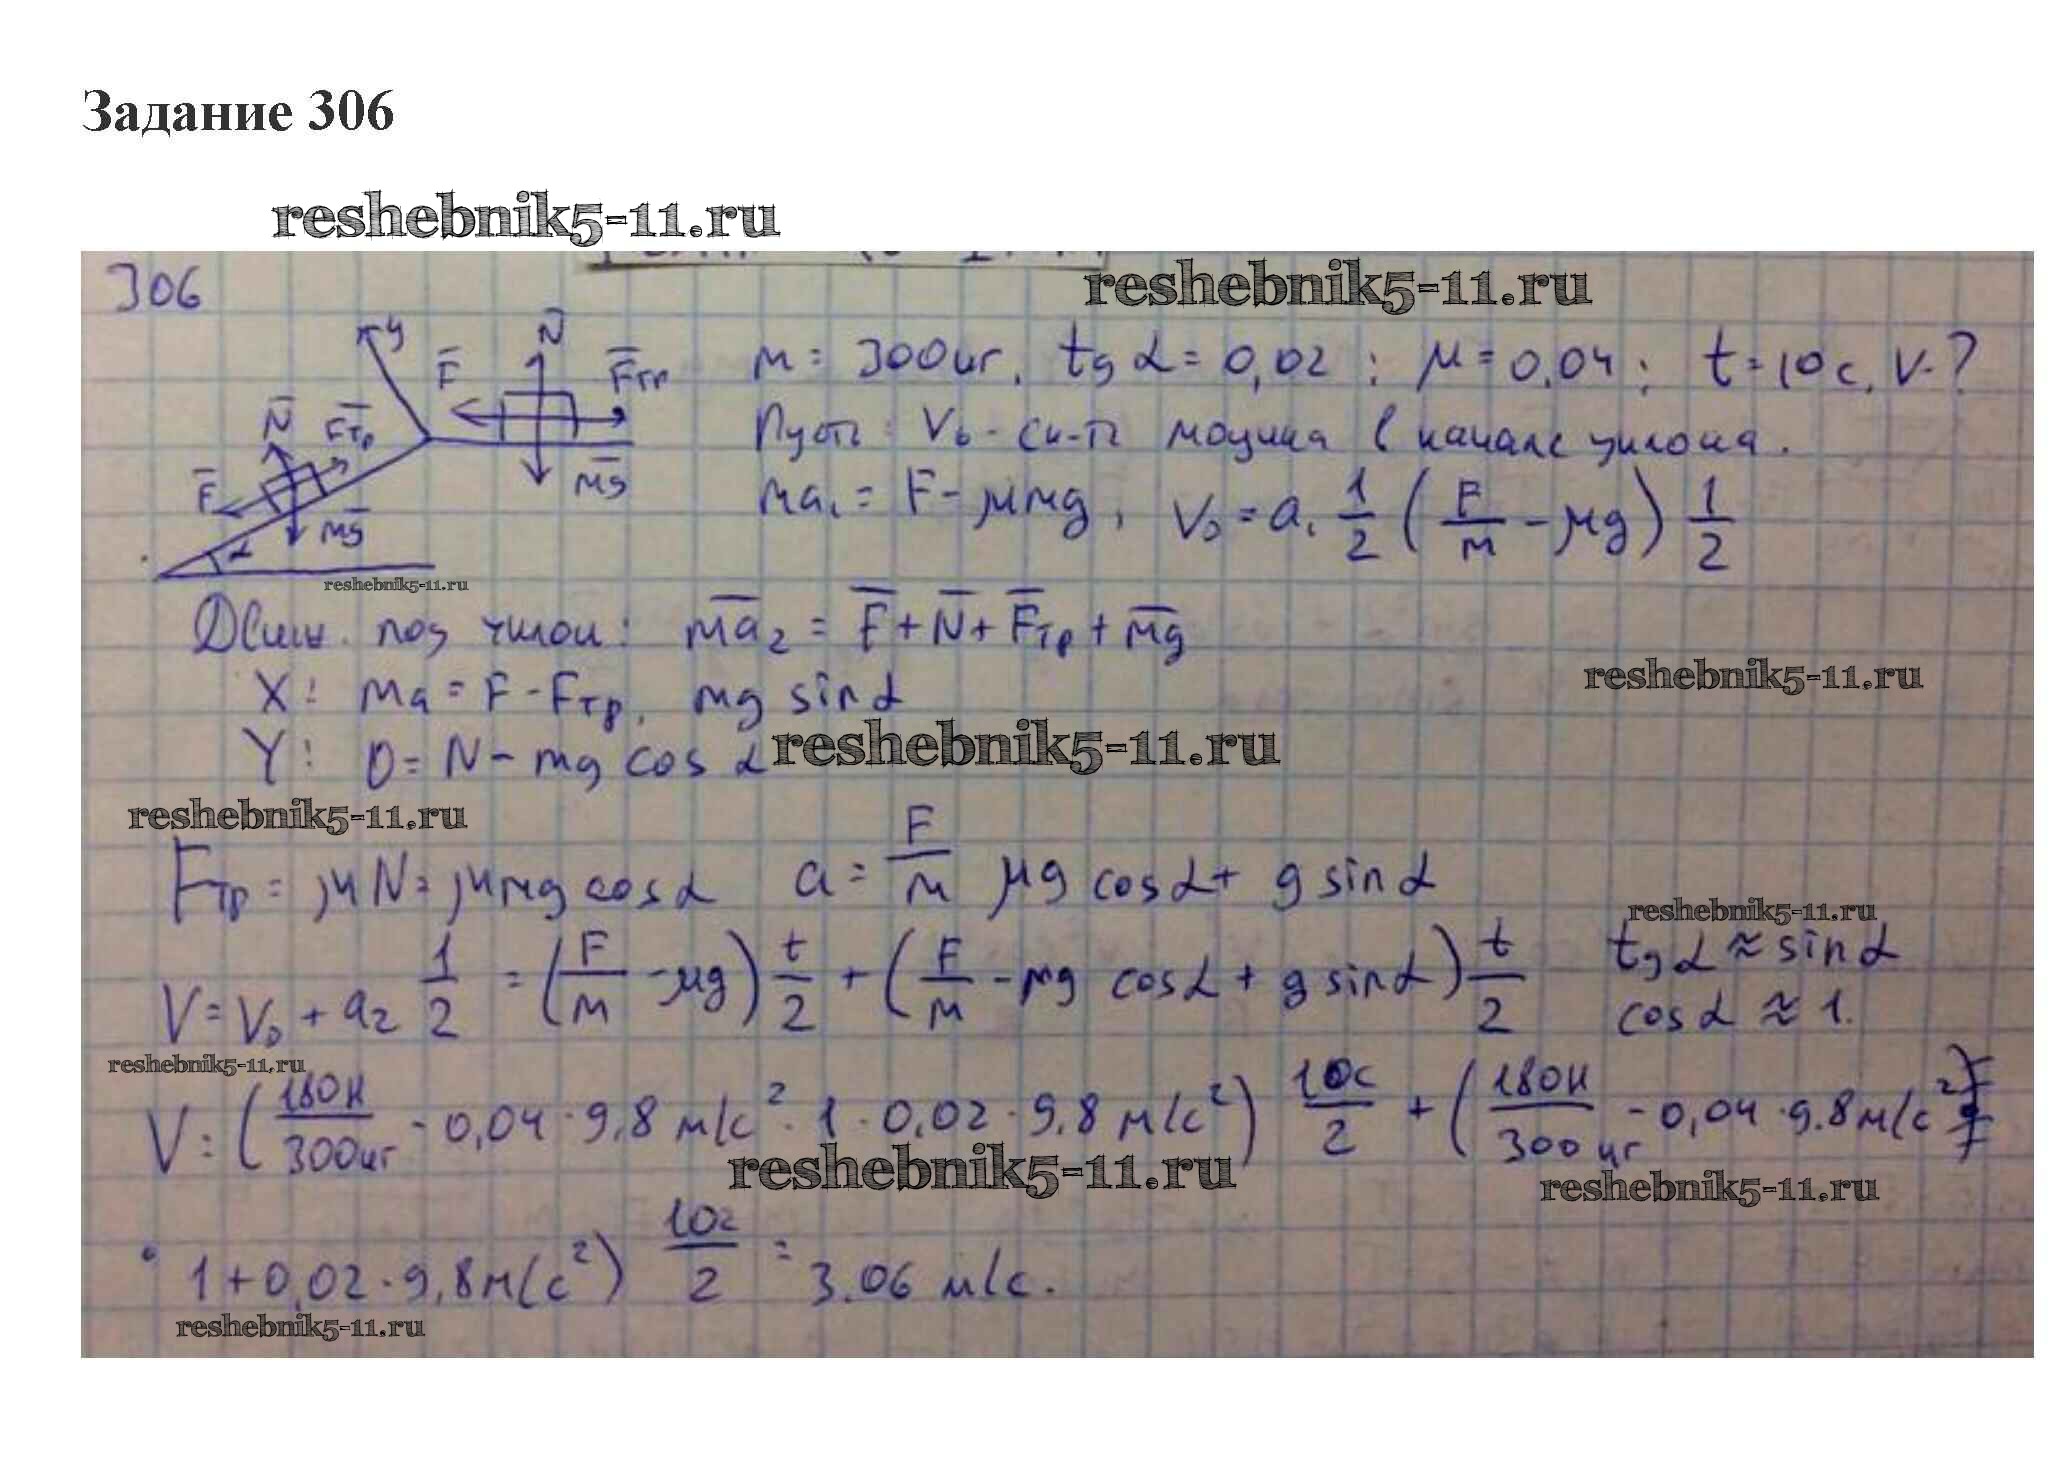 Задание 306
reshebnik5-11.ru
306
reshebnik5-11.ru
y
N
F
Fтр
mg
N
Fтр
F
mg
α
m = 300 кг, tg α = 0,02 ; μ = 0,04 ; t = 10 c, V - ?
Пусть V₀ - ск-ть в начале уклона.
ma₁ = F - μmg , V₀ = a₁ 1/2 (F/m - μg) 1/2
reshebnik5-11.ru
Движ. под : ma₂ = F + N + Fтр + mg
reshebnik5-11.ru
X: ma = F - Fтр, mg sin α
Y: 0 = N - mg cos α
reshebnik5-11.ru
reshebnik5-11.ru
Fтр = μN = μmg cos α a = F/m μg cos α + g sin α
reshebnik5-11.ru
V = V₀ + a₂ 1/2 = (F/m - μg) t/2 + (F/m - mg cos α + g sin α) t/2 tg α ≈ sin α
cos α ≈ 1.
reshebnik5-11.ru
V = (180 H/300 кг - 0,04 · 9,8 м/с² · 1 · 0,02 · 9,8 м/с²) 10c/2 + (180 H/300 кг - 0,04 · 9.8 м/с²)
reshebnik5-11.ru
reshebnik5-11.ru
· 1 + 0,02 · 9,8 м/с²) 10c/2 = 3.06 м/с.
reshebnik5-11.ru